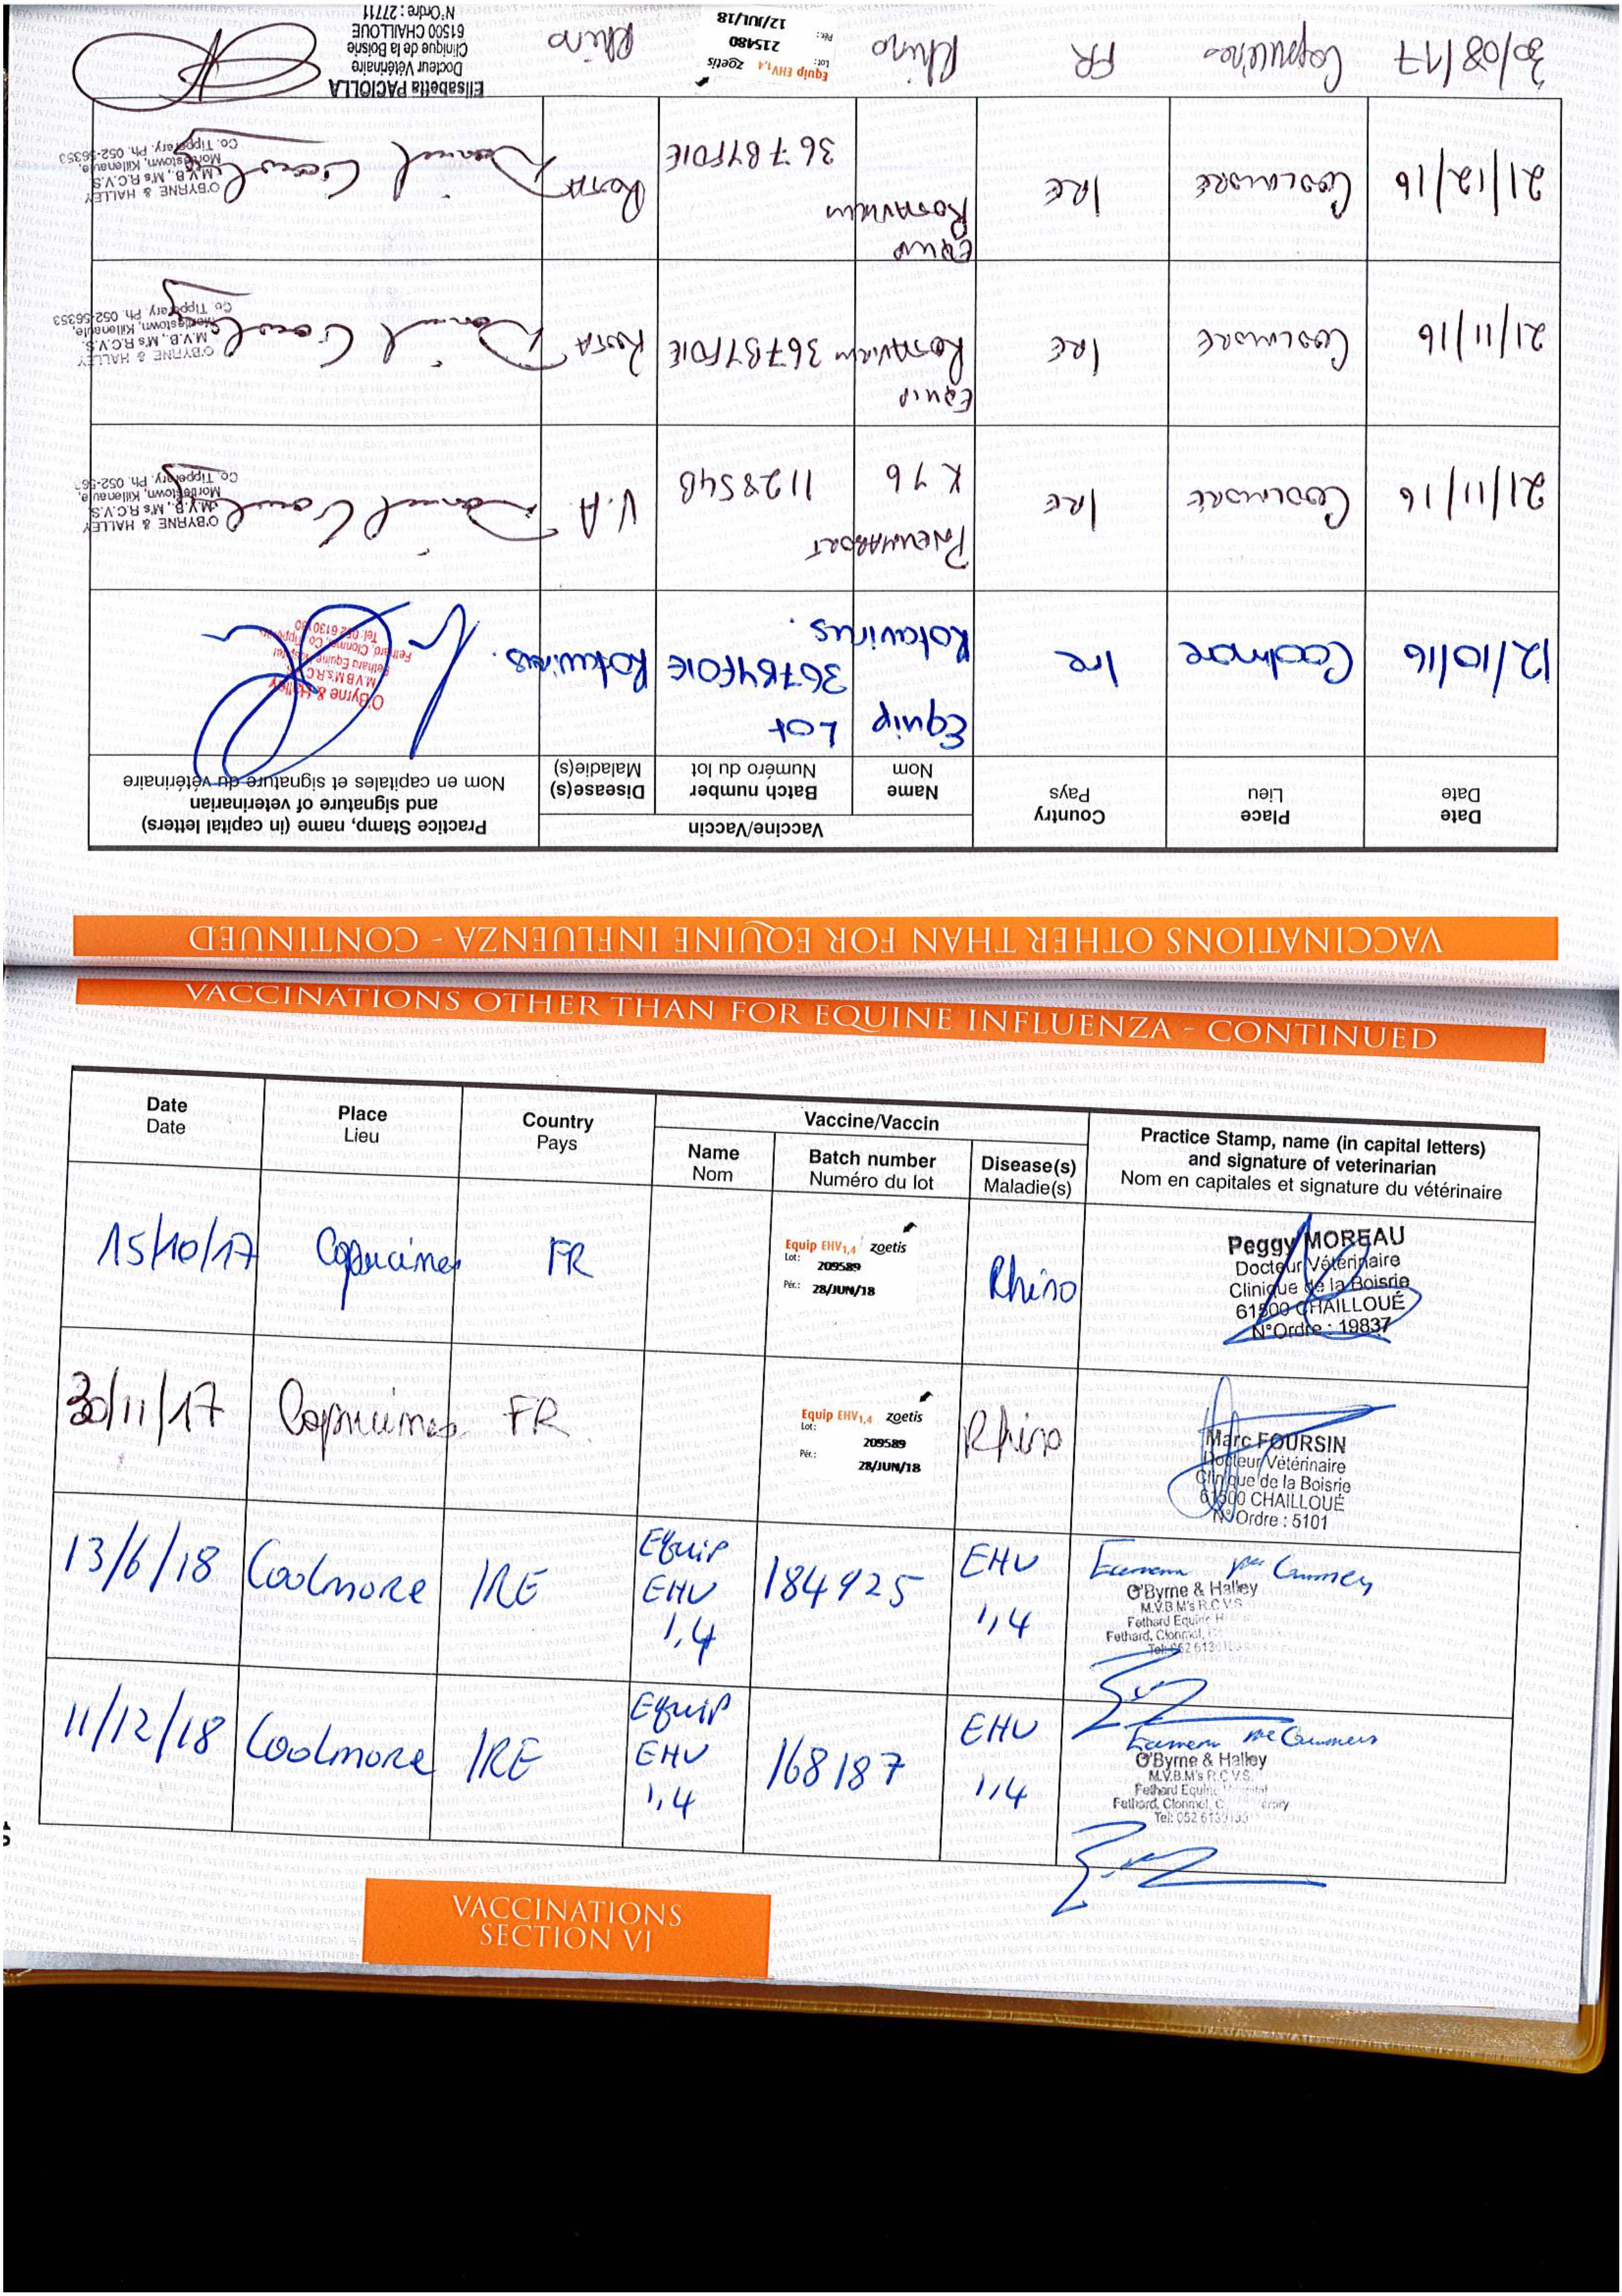 VACCINATIONS OTHER THAN FOR EQUINE INFLUENZA - CONTINUED
Date
Date
Place
Lieu
Country
Pays
Vaccine/Vaccin
Name
Nom
Batch number
Numéro du lot
Disease(s)
Maladie(s)
Practice Stamp, name (in capital letters)
and signature of veterinarian
Nom en capitales et signature du vétérinaire
12/10/16 Coolmore Ire Equip Rotavirus. LOT 36784F01E Rotavirus.
O'Byrne & Halley
M.V.B M's R.C.V.S
Fethard Equine Hospital
Fethard, Clonmel, Co Tipperary
Tel: 052 6130130
21/11/16 COOLMORE IRE PNEUMABORT K 76 112854B V.A
O'BYRNE & HALLEY
M.V.B., M's R.C.V.S.
Mortlestown, Killenaule,
Co. Tipperary. Ph. 052-56
21/11/16 COOLMORE IRE EQUIP ROTAVIRUS 36787F01E ROTA
O'BYRNE & HALLEY
M.V.B., M's R.C.V.S.
Mortlestown, Killenaule,
Co. Tipperary. Ph. 052-56353
21/12/16 COOLMORE IRE EQUIP ROTAVIRUS 36787F01E ROTA
O'BYRNE & HALLEY
M.V.B., M's R.C.V.S.
Mortlestown, Killenaule,
Co. Tipperary. Ph. 052-56353
30/08/17 Capucines FR Rhino
Equip EHV1,4 zoetis
Lot: 215480
Pér.: 12/JUL/18
Rhino
Elisabetta PACIOLLA
Docteur Vétérinaire
Clinique de la Boisrie
61500 CHAILLOUE
N°Ordre : 27711
VACCINATIONS OTHER THAN FOR EQUINE INFLUENZA - CONTINUED
Date
Date
Place
Lieu
Country
Pays
Vaccine/Vaccin
Name
Nom
Batch number
Numéro du lot
Disease(s)
Maladie(s)
Practice Stamp, name (in capital letters)
and signature of veterinarian
Nom en capitales et signature du vétérinaire
15/10/17 Capucines FR
Equip EHV1,4 zoetis
Lot: 209589
Pér.: 28/JUN/18
Rhino
Peggy MOREAU
Docteur Vétérinaire
Clinique de la Boisrie
61500 CHAILLOUÉ
N°Ordre : 19837
30/11/17 Capucines FR
Equip EHV1,4 zoetis
Lot: 209589
Pér.: 28/JUN/18
Rhino
Marc FOURSIN
Docteur Vétérinaire
Clinique de la Boisrie
61500 CHAILLOUÉ
N°Ordre : 5101
13/6/18 Coolmore IRE Equip EHV 1,4 184925 EHV 1,4
O'Byrne & Halley
M.V.B M's R.C.V.S
Fethard Equine
Fethard, Clonmel,
Tel: 052 613
11/12/18 Coolmore IRE Equip EHV 1,4 168187 EHV 1,4
O'Byrne & Halley
M.V.B.M's R.C.V.S.
Fethard Equine Hospital
Fethard, Clonmel,
Tel: 052 6130130
VACCINATIONS
SECTION VI